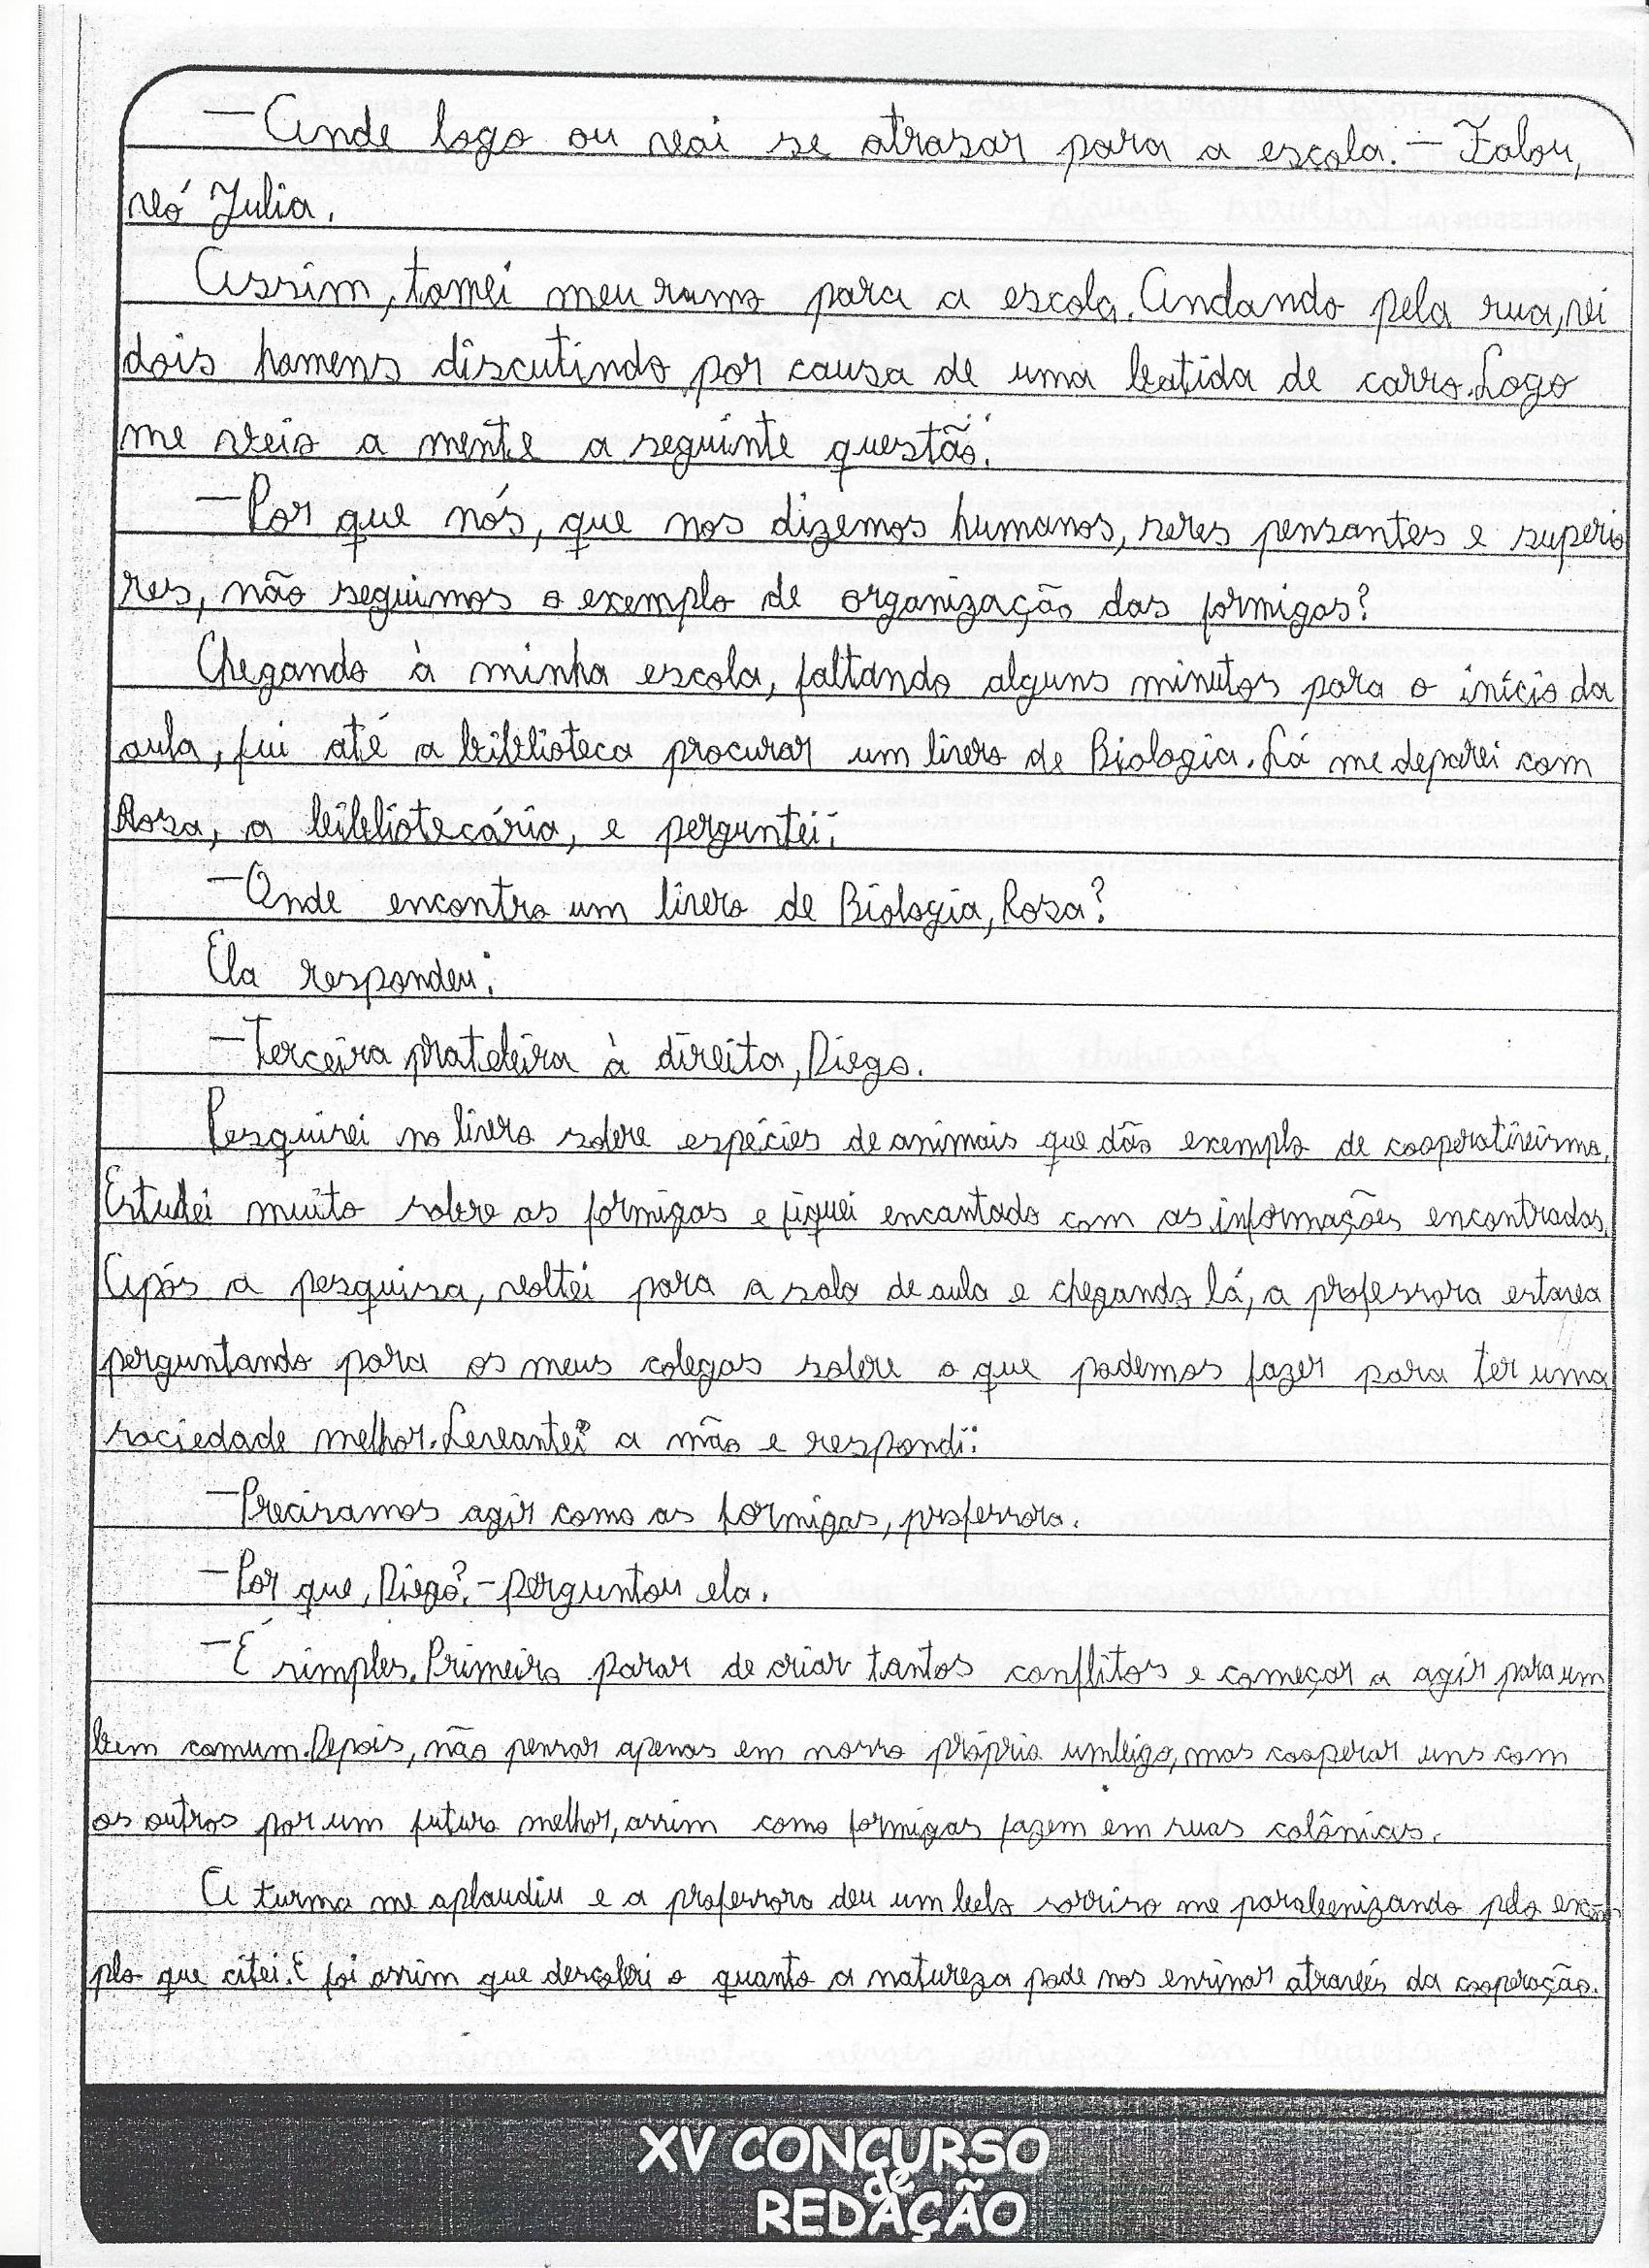 — Ande logo ou vai se atrasar para a escola. — Falou,
vó Julia.
Assim, tomei meu rumo para a escola. Andando pela rua, vi
dois homens discutindo por causa de uma batida de carro. Logo
me veio a mente a seguinte questão:
— Por que nós, que nos dizemos humanos, seres pensantes e superio
res, não seguimos o exemplo de organização das formigas?
Chegando à minha escola, faltando alguns minutos para o início da
aula, fui até a biblioteca procurar um livro de Biologia. Lá me deparei com
Rosa, a bibliotecária, e perguntei:
— Onde encontro um livro de Biologia, Rosa?
Ela respondeu:
— Terceira prateleira à direita, Diego.
Pesquisei no livro sobre espécies de animais que dão exemplo de cooperativismo.
Estudei muito sobre as formigas e fiquei encantado com as informações encontradas.
Após a pesquisa, voltei para a sala de aula e chegando lá, a professora estava
perguntando para os meus colegas sobre o que podemos fazer para ter uma
sociedade melhor. Levantei a mão e respondi:
— Precisamos agir como as formigas, professora.
— Por que, Diego? - perguntou ela.
— É simples. Primeiro parar de criar tantos conflitos e começar a agir para um
bem comum. Depois, não pensar apenas em nosso próprio umbigo, mas cooperar uns com
os outros por um futuro melhor, assim como formigas fazem em suas colônias.
A turma me aplaudiu e a professora deu um belo sorriso me parabenizando pelo exem
plo que citei. E foi assim que descobri o quanto a natureza pode nos ensinar através da cooperação.
XV CONCURSO
de
REDAÇÃO